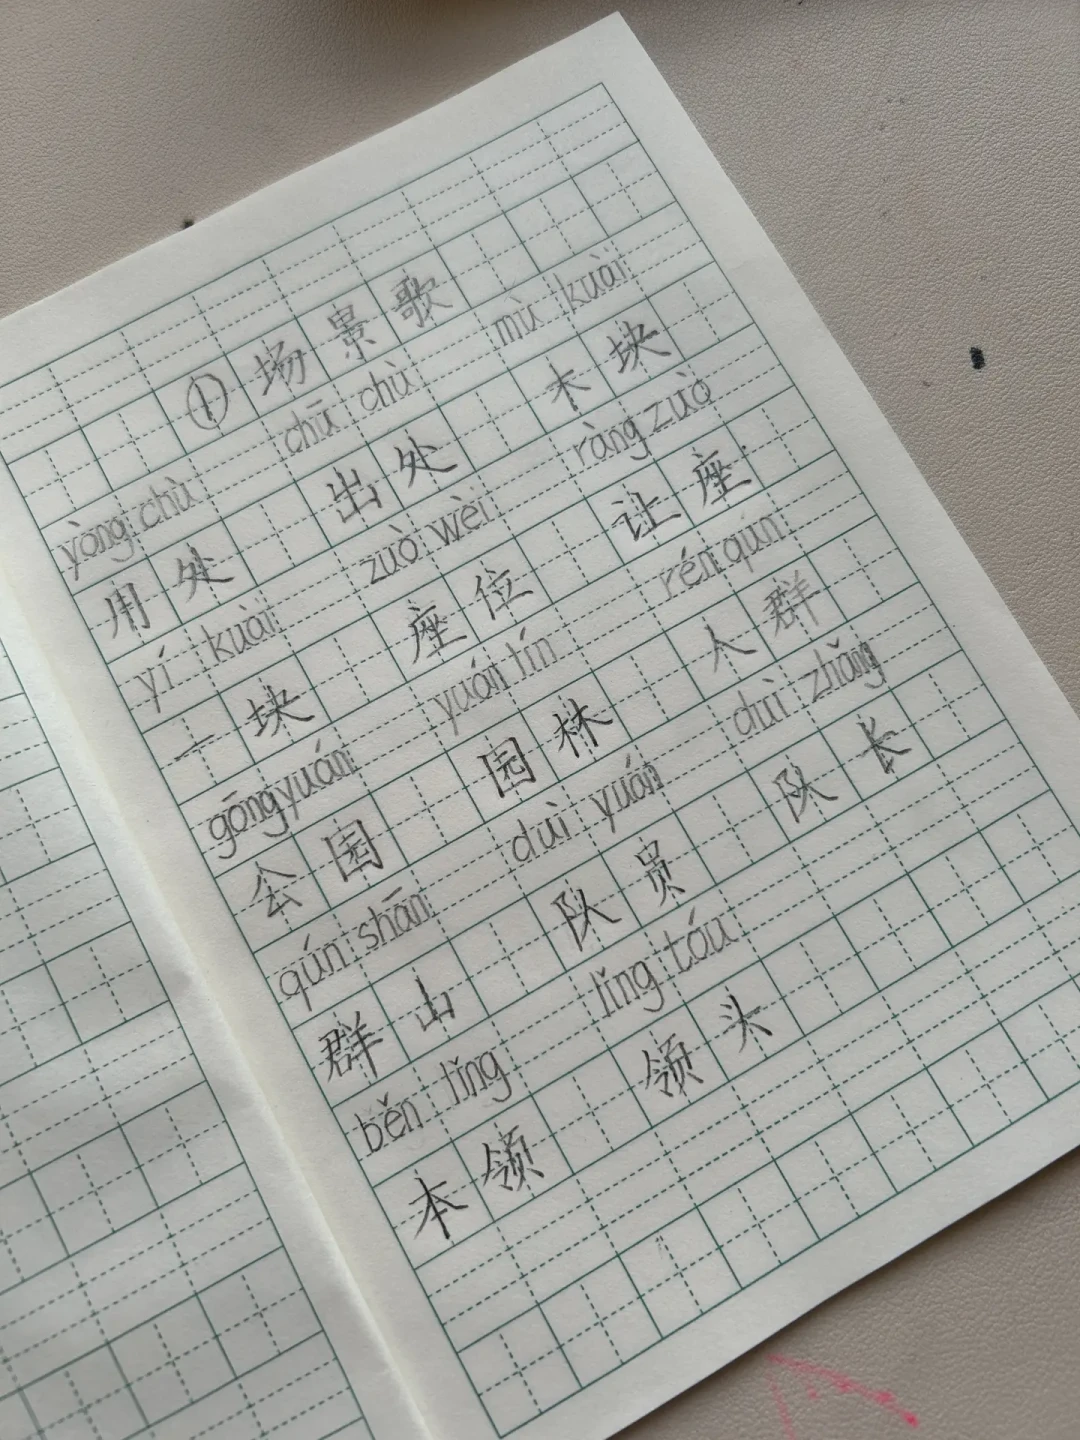 ①场景歌
yòng chù chū chù mù kuài
用处 出处 木块
yí kuài zuò wèi ràng zuò
一块 座位 让座
gōng yuán yuán lín rén qún
公园 园林 人群
qún shān duì yuán duì zhǎng
群山 队员 队长
běn lǐng lǐng táu
本领 领头